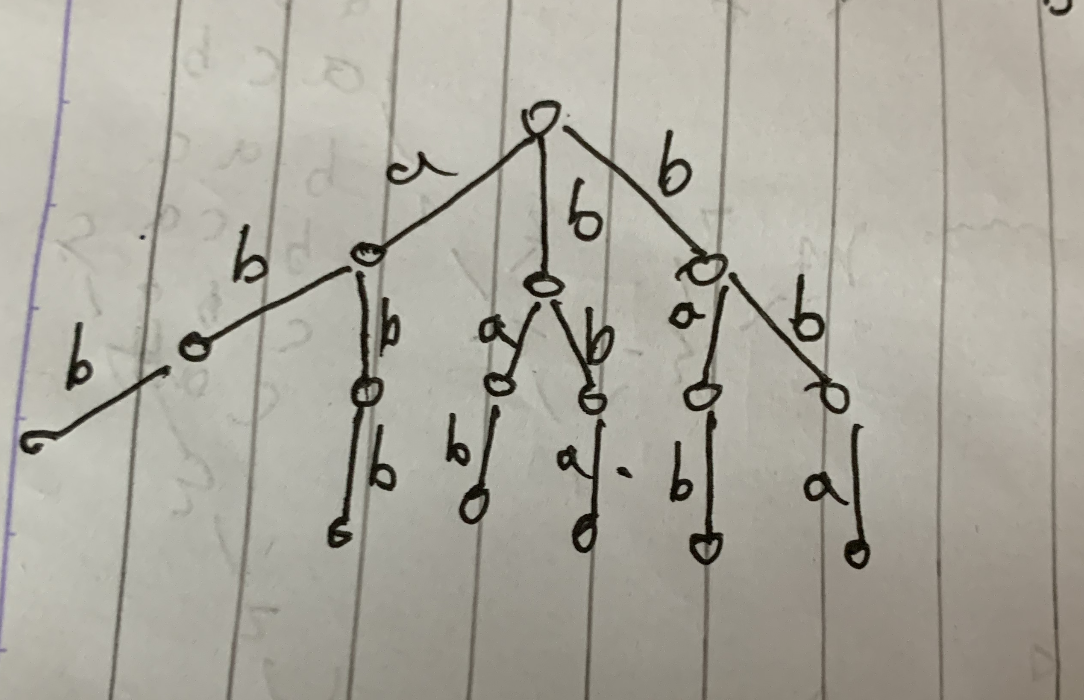 a b b
b b a b a b
b b a b a